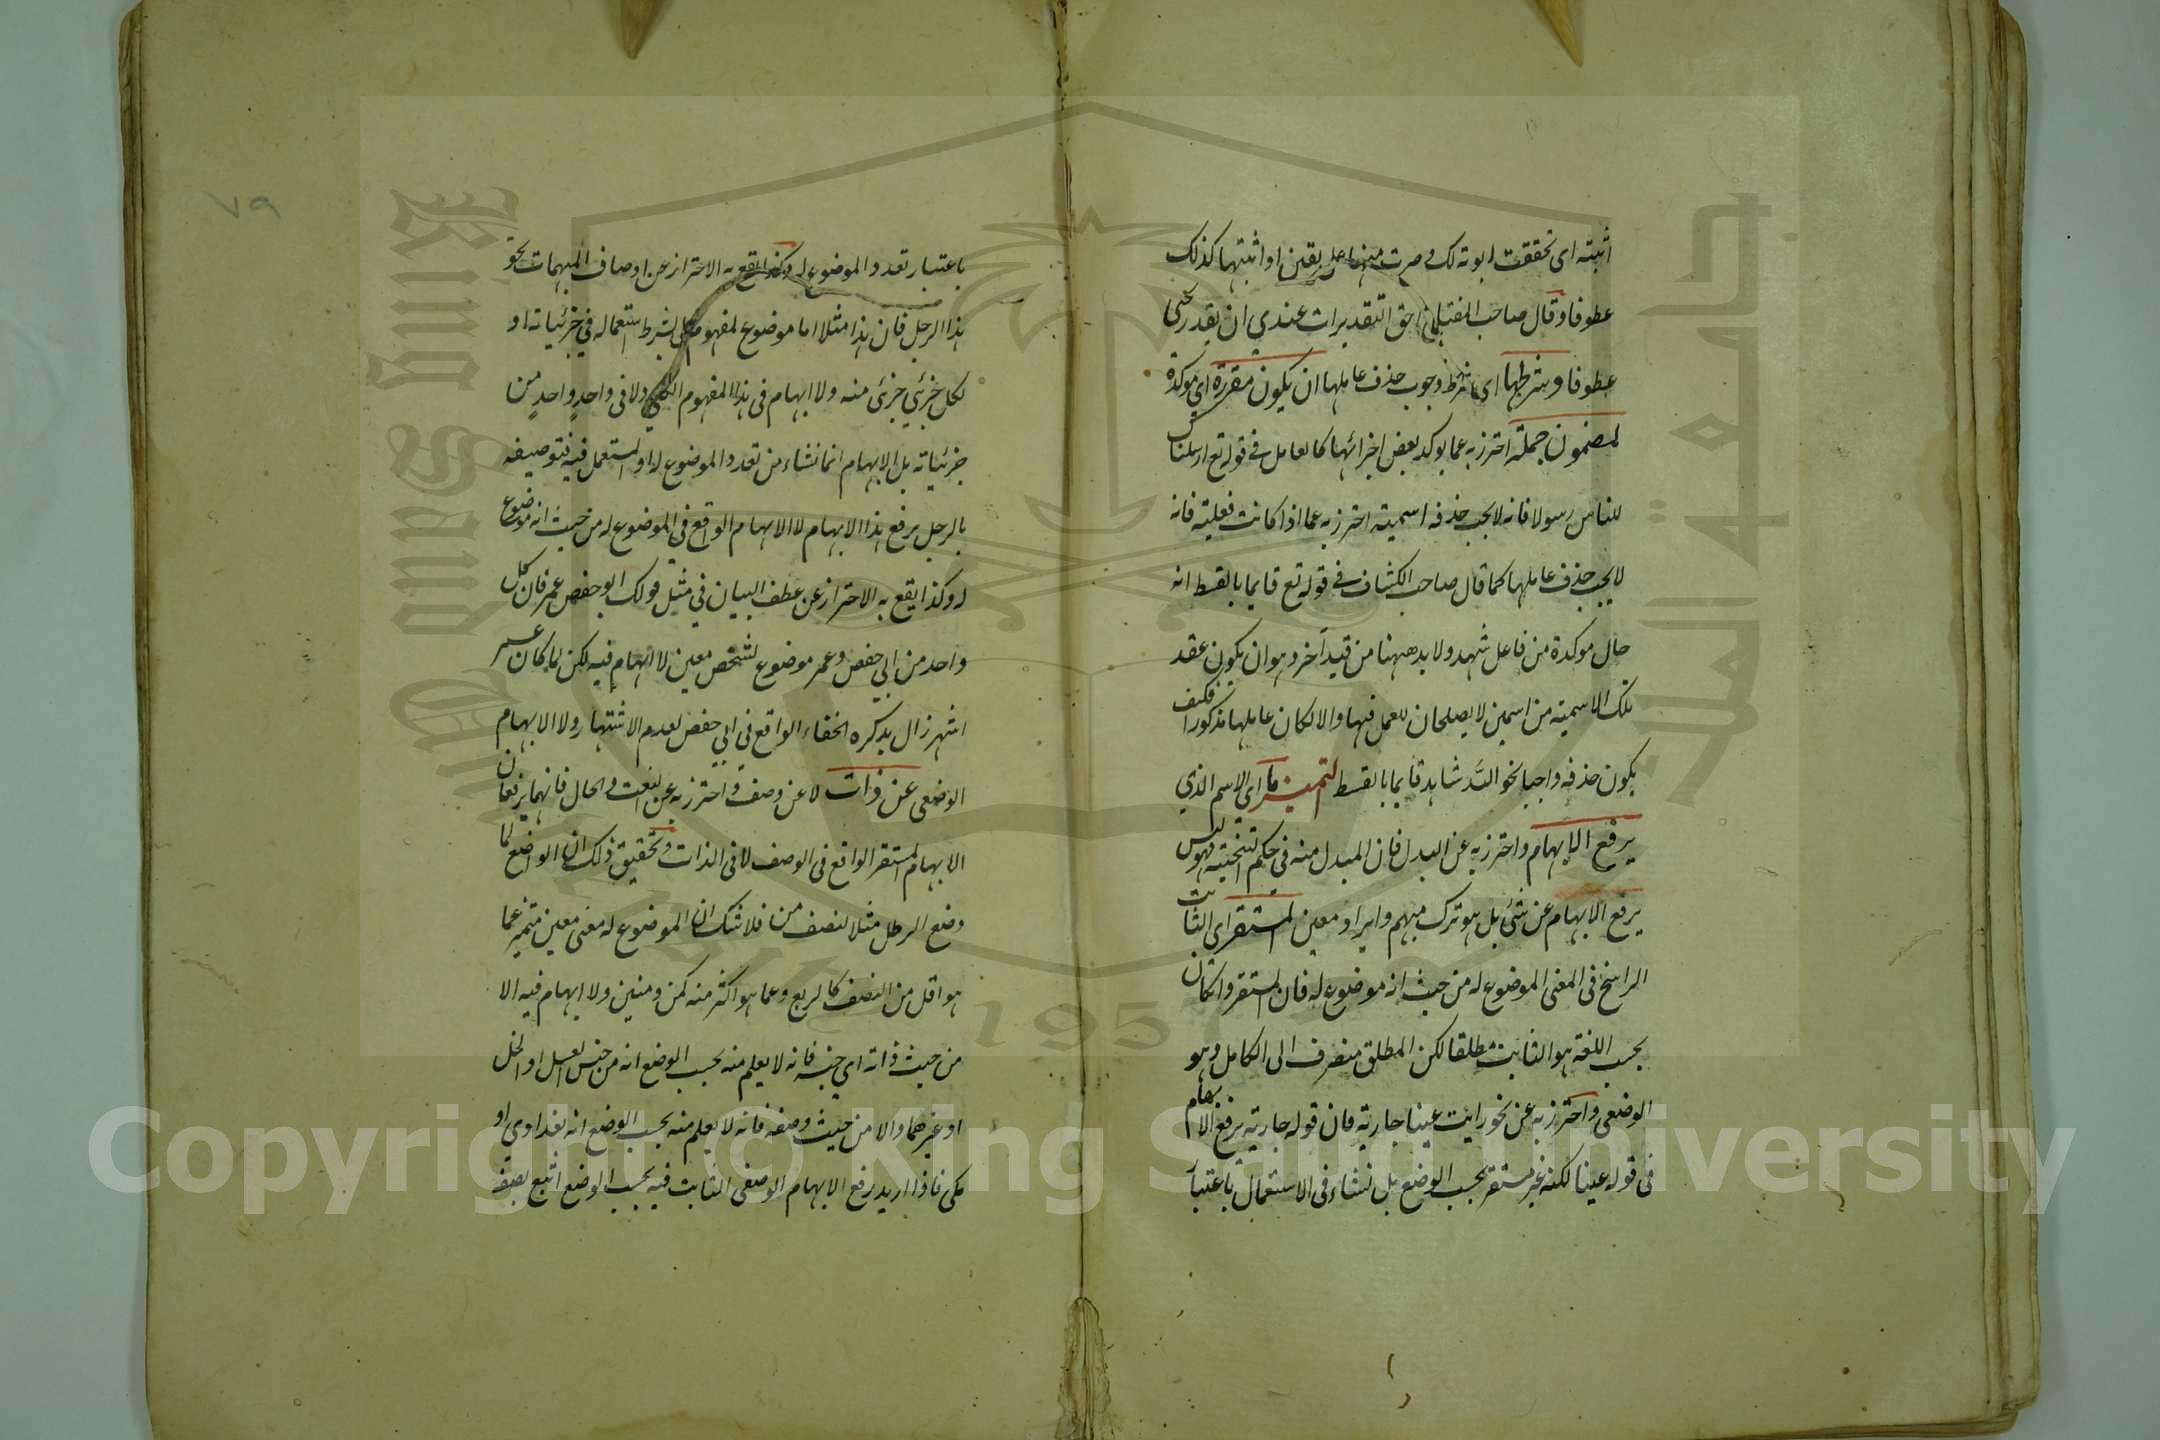 اثبته اى تحققت ابوته لك وصرت منها على يقين او اثبتها كذلك
عطوفا وقال صاحب المفتاح احق التقديرات عندي ان يقدر يحنى
عطوفا وشرطها اى شرط وجوب حذف عاملها ان يكون مقررة اى مؤكدة
لمضمون جملة احترز به عما يوكد بعض اجزائها كالعامل في قوله تع ارسلناك
للناس رسولا فانه لا يجب حذفه اسمية احترز به عما اذا كانت فعلية فانه
لا يجب حذف عاملها كما قال صاحب الكشاف في قوله تع قايما بالقسط انه
حال موكدة من فاعل شهد ولا بد ههنا من قيد آخر وهو ان يكون عقد
تلك الاسمية من اسمين لا يصلحان للعمل فيها والا لكان عاملها مذكورا فكيف
يكون حذفه واجبا نحو الله شاهد قايما بالقسط التمييز ما اى الاسم الذي
يرفع الابهام واحترز به عن البدل فان المبدل منه في حكم التنحية فهو ليس
يرفع الابهام عن شئ بل هو ترك مبهم وايراد معين المستقر اى الثابت
الراسخ فى المعنى الموضوع له من حيث انه موضوع له فان المستقر وان كان
بحسب اللغة هو الثابت مطلقا لكن المطلق منصرف الى الكامل وهو
الوضعى واحترز به عن نحو رايت عينا جارية فان قوله جارية يرفع الابهام
فى قوله عينا لكنه غير مستقر بحسب الوضع بل نشاء فى الاستعمال باعتبار
باعتبار تعدد الموضوع له وكذا يقع به الاحتراز عن اوصاف المبهمات نحو
هذا الرجل فان هذا مثلا اما موضوع لمفهوم كلى بشرط استعماله في جزئياته او
لكل جزئي جزئى منه ولا ابهام فى هذا المفهوم الكلي ولا فى واحد واحد من
جزئياته بل الابهام انما نشاء من تعدد الموضوع له او المستعمل فيه فتوصيفه
بالرجل يرفع هذا الابهام لا الابهام الواقع فى الموضوع له من حيث انه موضوع
له وكذا يقع به الاحتراز عن عطف البيان في مثل قولك ابو حفص عمر فان كل
واحد من ابي حفص وعمر موضوع لشخص معين لا ابهام فيه لكن لما كان عمر
اشهر زال بذكره الخفاء الواقع في ابي حفص لعدم الاشتهار ولا الابهام
الوضعى عن ذات لا عن وصف واحترز به عن النعت والحال فانهما يرفعان
الابهام المستقر الواقع فى الوصف لا فى الذات وتحقيق ذلك ان الواضع لما
وضع الرطل مثلا لنصف من فلا شك ان الموضوع له معنى معين متميز عما
هو اقل من النصف كالربع وعما هو اكثر منه كمن ومنين ولا ابهام فيه الا
من حيث ذاته اى جنسه فانه لا يعلم منه بحسب الوضع انه من جنس العسل او الخل
او غيرهما والا من حيث وصفه فانه لا يعلم منه بحسب الوضع انه بغداوي او
مكى فاذا اريد رفع الابهام الوصفى الثابت فيه بحسب الوضع اتبع بصفة
٧٩
Copyright © King Saud University